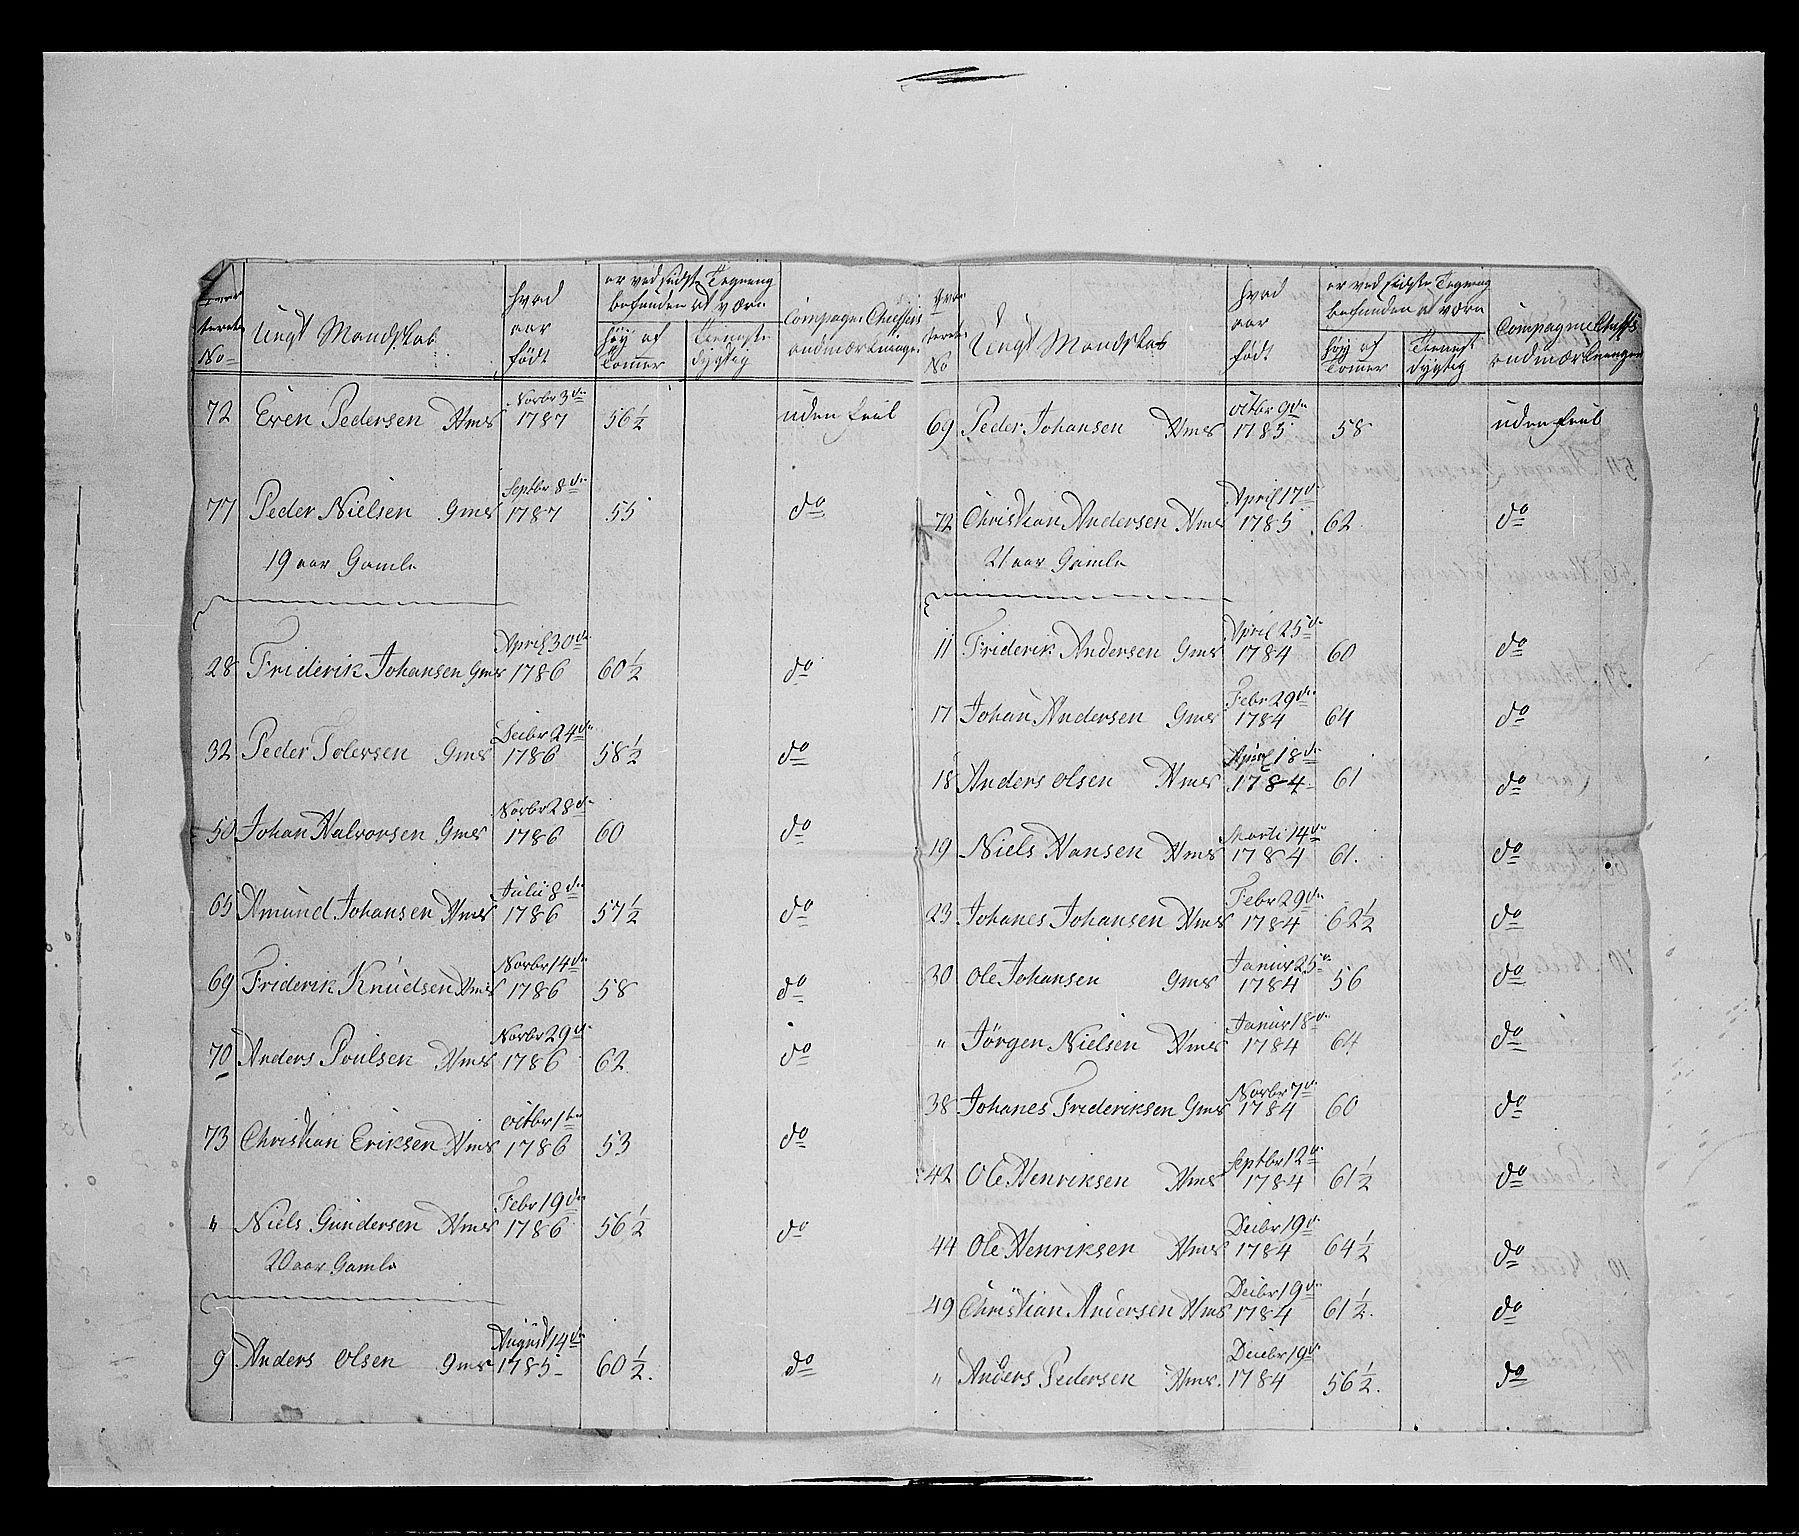 No Ungt Mandskab hvad aar født er ved sidste Tegning befunden at være høy af Tomer Tieniste dygtig Compagnie Cheffens andmærkninger
72 Even Pedersen Hms Novbr 3de 1787 56½ uden feil
77 Peder Nielsen Gms Septbr 8de 1787 55 do
19 aar Gamle
28 Friderik Johansen Gms April 30de 1786 60½ do
32 Peder Tolersen Gms Deibr 24de 1786 58½ do
50 Johan Halvorsen Gms Novbr 28de 1786 60 do
65 Amund Johansen Hms Julii 8de 1786 57½ do
69 Friderik Knudsen Hms Novbr 14de 1786 58 do
70 Anders Poulsen Hms Novbr 29de 1786 62 do
73 Christian Eriksen Hms Octbr 1te 1786 53 do
" Niels Gundersen Hms Febr 19de 1786 56½ do
20 aar Gamle
9 Anders Olsen Gms August 14de 1785 60½ do
No Ungt Mandskab hvad aar født er ved sidste Tegning befunden at være høy af Tomer Tienist dygtig Compagnie Cheffens andmærkninger
69 Peder Johansen Hms Octbr 9de 1785 58 uden feil
72 Christian Andersen Hms April 17de 1785 62 do
21 aar Gamle
11 Friderik Andersen Gms April 25de 1784 60 do
17 Johan Andersen Gms Febr 29de 1784 64 do
18 Anders Olsen Hms April 18de 1784 61 do
19 Niels Hansen Hms Marti 14de 1784 61 do
23 Johanes Johansen Hms Febr 29de 1784 62½ do
30 Ole Johansen Gms Januar 25de 1784 56 do
" Jörgen Nielsen Hms Januar 18de 1784 64 do
38 Johanes Frideriksen Gms Novbr 7de 1784 60 do
42 Ole Henriksen Hms Septbr 12de 1784 61½ do
44 Ole Henriksen Hms Deibr 19de 1784 64½ do
49 Christian Andersen Hms Deibr 19de 1784 61½ do
" Anders Pedersen Hms Deiebr 19de 1784 56½ do